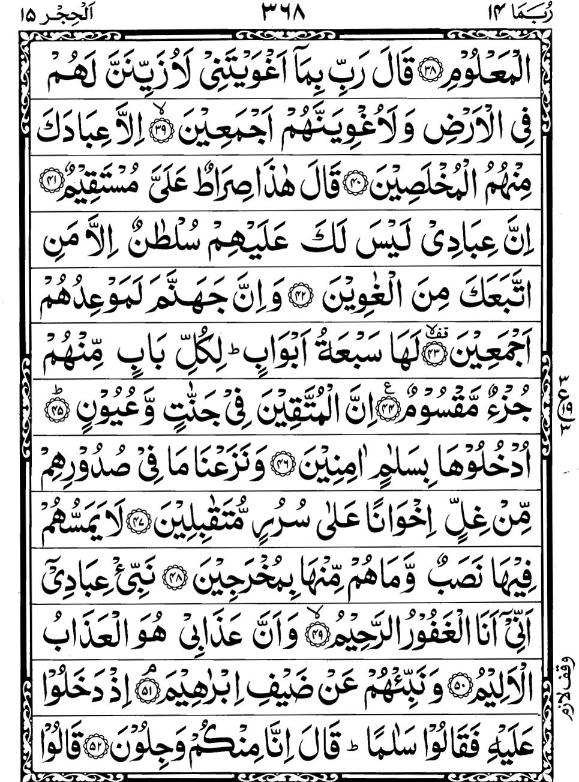 رُبَمَا ١٤ ٣٦٨ اَلْحِجْر ١٥
الْمَعْلُوْمِ ﴿٣٨﴾ قَالَ رَبِّ بِمَاۤ اَغْوَيْتَنِىْ لَاُزَيِّنَنَّ لَهُمْ
فِى الْاَرْضِ وَلَاُغْوِيَنَّهُمْ اَجْمَعِيْنَ ۙ﴿٣٩﴾ اِلَّا عِبَادَكَ
مِنْهُمُ الْمُخْلَصِيْنَ ﴿٤٠﴾ قَالَ هٰذَا صِرَاطٌ عَلَىَّ مُسْتَقِيْمٌ ﴿٤١﴾
اِنَّ عِبَادِىْ لَيْسَ لَكَ عَلَيْهِمْ سُلْطٰنٌ اِلَّا مَنِ
اتَّبَعَكَ مِنَ الْغٰوِيْنَ ﴿٤٢﴾ وَاِنَّ جَهَنَّمَ لَمَوْعِدُهُمْ
اَجْمَعِيْنَ ۙقف﴿٤٣﴾ لَهَا سَبْعَةُ اَبْوَابٍ ؕ لِكُلِّ بَابٍ مِّنْهُمْ
جُزْءٌ مَّقْسُوْمٌ ﴿٤٤﴾ ع اِنَّ الْمُتَّقِيْنَ فِىْ جَنّٰتٍ وَّعُيُوْنٍ ؕ﴿٤٥﴾
ع ٣ ١٩ ٣
اُدْخُلُوْهَا بِسَلٰمٍ اٰمِنِيْنَ ﴿٤٦﴾ وَنَزَعْنَا مَا فِىْ صُدُوْرِهِمْ
مِّنْ غِلٍّ اِخْوَانًا عَلٰى سُرُرٍ مُّتَقٰبِلِيْنَ ﴿٤٧﴾ لَا يَمَسُّهُمْ
فِيْهَا نَصَبٌ وَّمَا هُمْ مِّنْهَا بِمُخْرَجِيْنَ ﴿٤٨﴾ نَبِّئْ عِبَادِىْۤ
اَنِّىْۤ اَنَا الْغَفُوْرُ الرَّحِيْمُ ۙ﴿٤٩﴾ وَاَنَّ عَذَابِىْ هُوَ الْعَذَابُ
الْاَلِيْمُ ﴿٥٠﴾ وَنَبِّئْهُمْ عَنْ ضَيْفِ اِبْرٰهِيْمَ ۘ﴿٥١﴾ اِذْ دَخَلُوْا
وقف لازم
عَلَيْهِ فَقَالُوْا سَلٰمًا ؕ قَالَ اِنَّا مِنْكُمْ وَجِلُوْنَ ﴿٥٢﴾ قَالُوْا